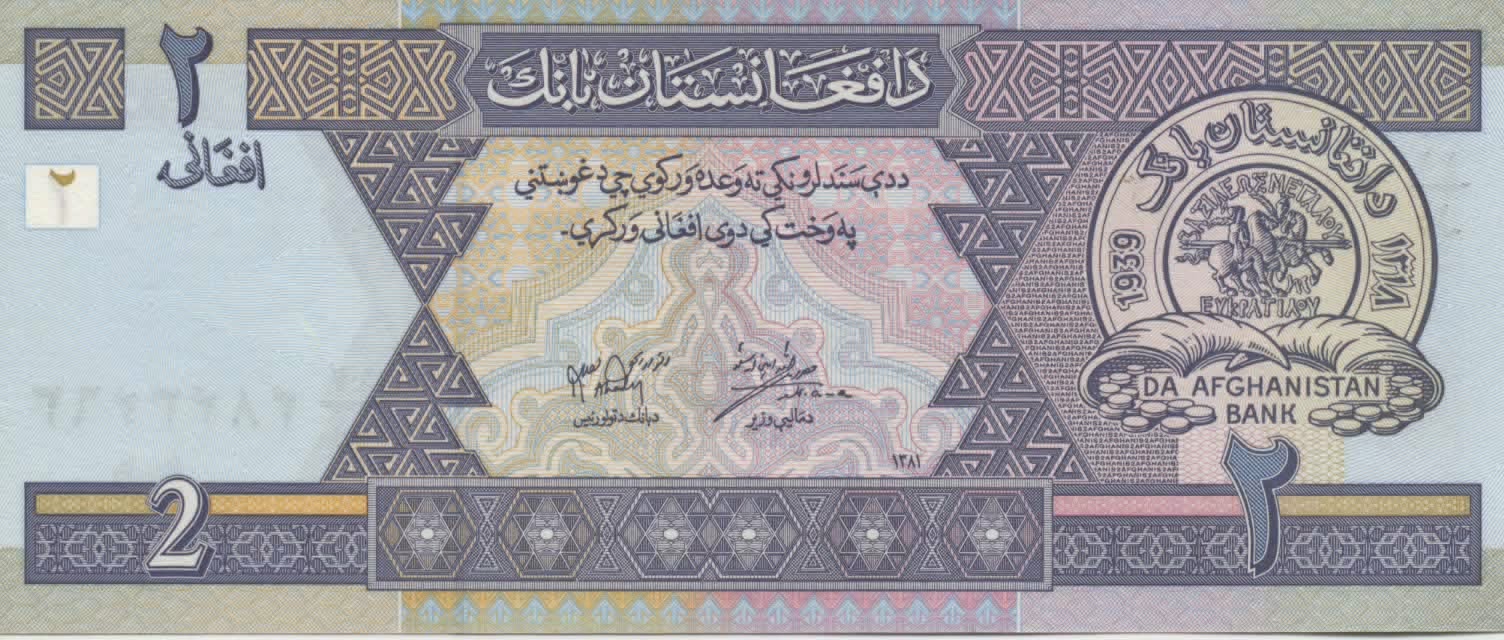 د افغانستان بانک
۲
افغانی
۲
ددې سند لرونکي ته وعده ورکوي چې د غوښتنې
په وخت کې دوی افغانی ورکړي.
د افغانستان بانک
1939
۱۳۱۸
ΒΑΣΙΛΕΩΣ ΜΕΓΑΛΟΥ
ΕΥΚΡΑΤΙΔΟΥ
DA AFGHANISTAN
BANK
د بانک د ټولو رئیس
د مالیې وزیر
۱۳۸۱
2
۲